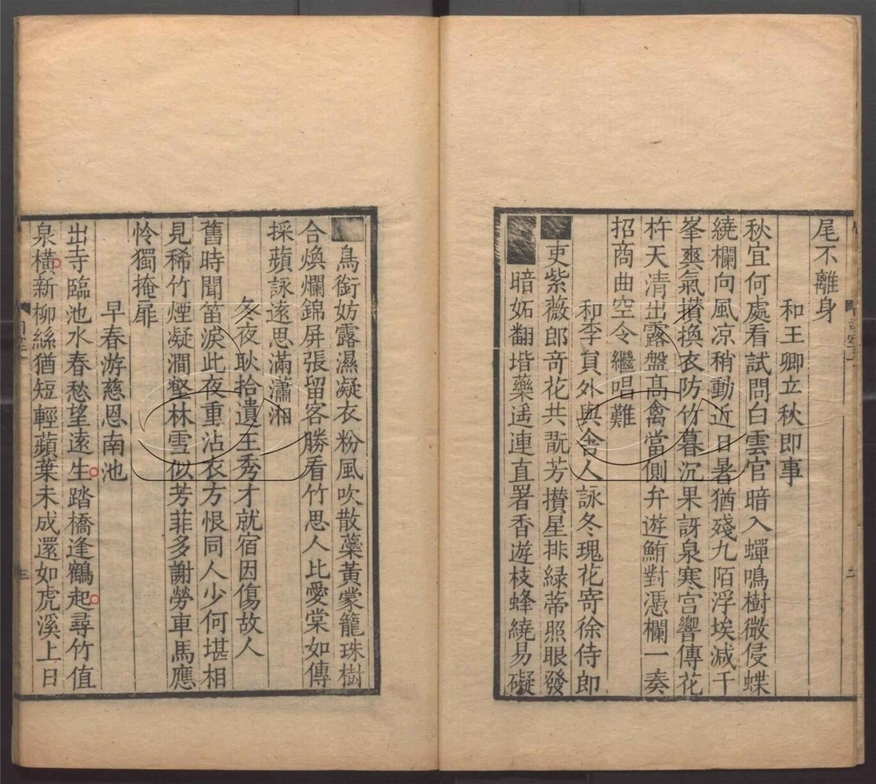 尾不離身
和王卿立秋即事
秋宜何處看試問白雲官暗入蟬鳴樹微侵蝶
繞欄向風凉稍動近日暑猶殘九陌浮埃減千
峯爽氣攢換衣防竹暮沉果訝泉寒宮響傳花
杵天清出露盤高禽當側弁遊鮪對憑欄一奏
招商曲空令繼唱難
和李員外與舍人詠冬瑰花寄徐侍郎
吏紫薇郎奇花共翫芳攢星排緑蒂照眼發
暗妬翻堦藥遥連直署香遊枝蜂繞易礙
鳥銜妨露濕凝衣粉風吹散蘂黃蒙籠珠樹
合煥爛錦屏張留客勝看竹思人比愛棠如傳
採蘋詠遠思滿瀟湘
冬夜耿拾遺王秀才就宿因傷故人
舊時聞笛淚此夜重沾衣方恨同人少何堪相
見稀竹煙凝澗壑林雪似芳菲多謝勞車馬應
怜獨掩扉
早春游慈恩南池
出寺臨池水春愁望遠生踏橋逢鶴起尋竹值
泉橫新柳絲猶短輕蘋葉未成還如虎溪上日
二
三